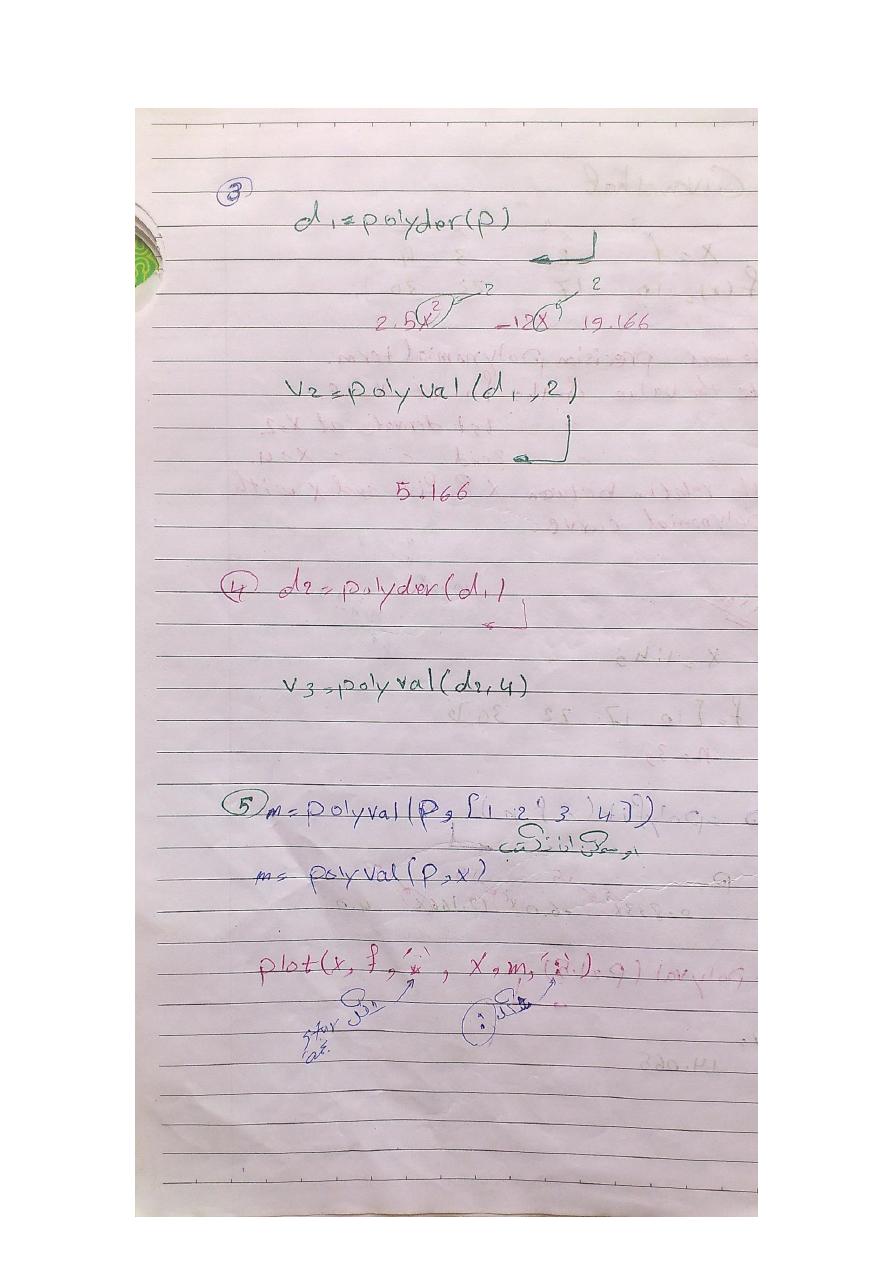 3
d1=polyder(p)
2 2
2.5x² -12x 19.166
v2=polyval(d1,2)
5.166
4 d2=polyder(d1)
v3=polyval(d2,4)
5 m=polyval(p,[1 2 3 4])
او
m= polyval(p,x)
plot(x, f,'*', x,m,':')
شكل شكل :
star